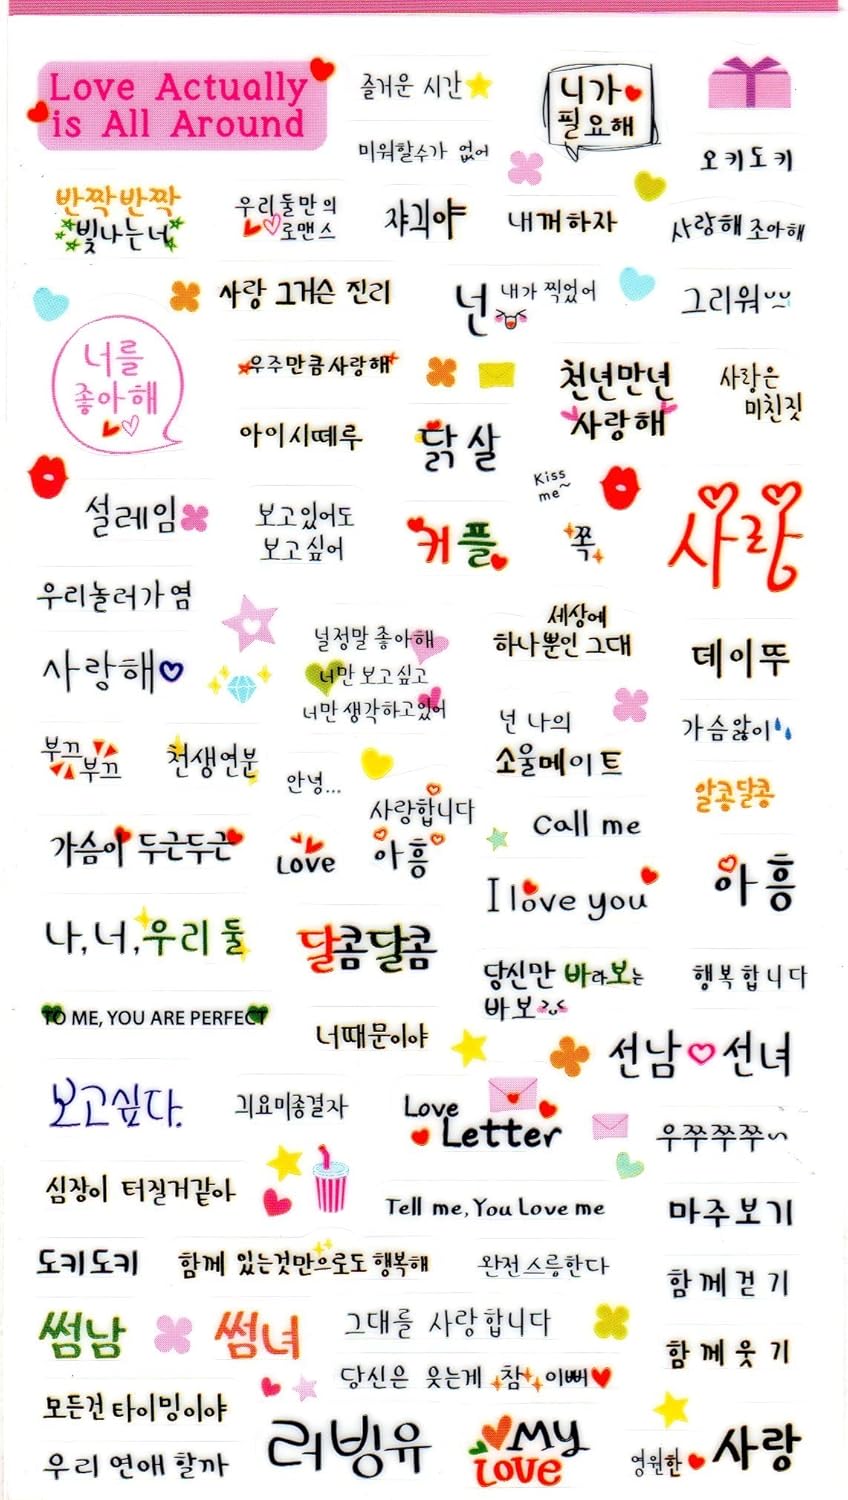 Love Actually
is All Around
즐거운 시간
니가
필요해
미워할수가 없어
오키도키
반짝반짝
빛나는너
우리둘만의
로맨스
쟈긔야
내꺼하자
사랑해 조아해
사랑 그거슨 진리
넌 내가 찍었어
그리워
너를
좋아해
우주만큼사랑해
천년만년
사랑해
사랑은
미친짓
아이시떼루
닭살
Kiss
me~
설레임
보고있어도
보고싶어
커플
쪽
사랑
우리놀러가염
세상에
하나뿐인 그대
널정말 좋아해
너만 보고싶고
너만 생각하고있어
사랑해
데이뚜
넌 나의
소울메이트
가슴앓이
부끄
부끄
천생연분
안녕...
알콩달콩
사랑합니다
Call me
가슴이 두근두근
Love
아흥
I love you
아흥
나,너,우리 둘
달콤달콤
당신만 바라보는
바보
행복합니다
TO ME, YOU ARE PERFECT
너때문이야
선남 선녀
보고싶다.
긔요미종결자
Love
Letter
우쭈쭈쭈~
심장이 터질거같아
Tell me, You Love me
마주보기
도키도키
함께 있는것만으로도 행복해
완전스릉한다
함께걷기
썸남
썸녀
그대를 사랑합니다
함께웃기
당신은 웃는게 참 이뻐
모든건 타이밍이야
우리 연애 할까
러빙유
My
Love
영원한 사랑